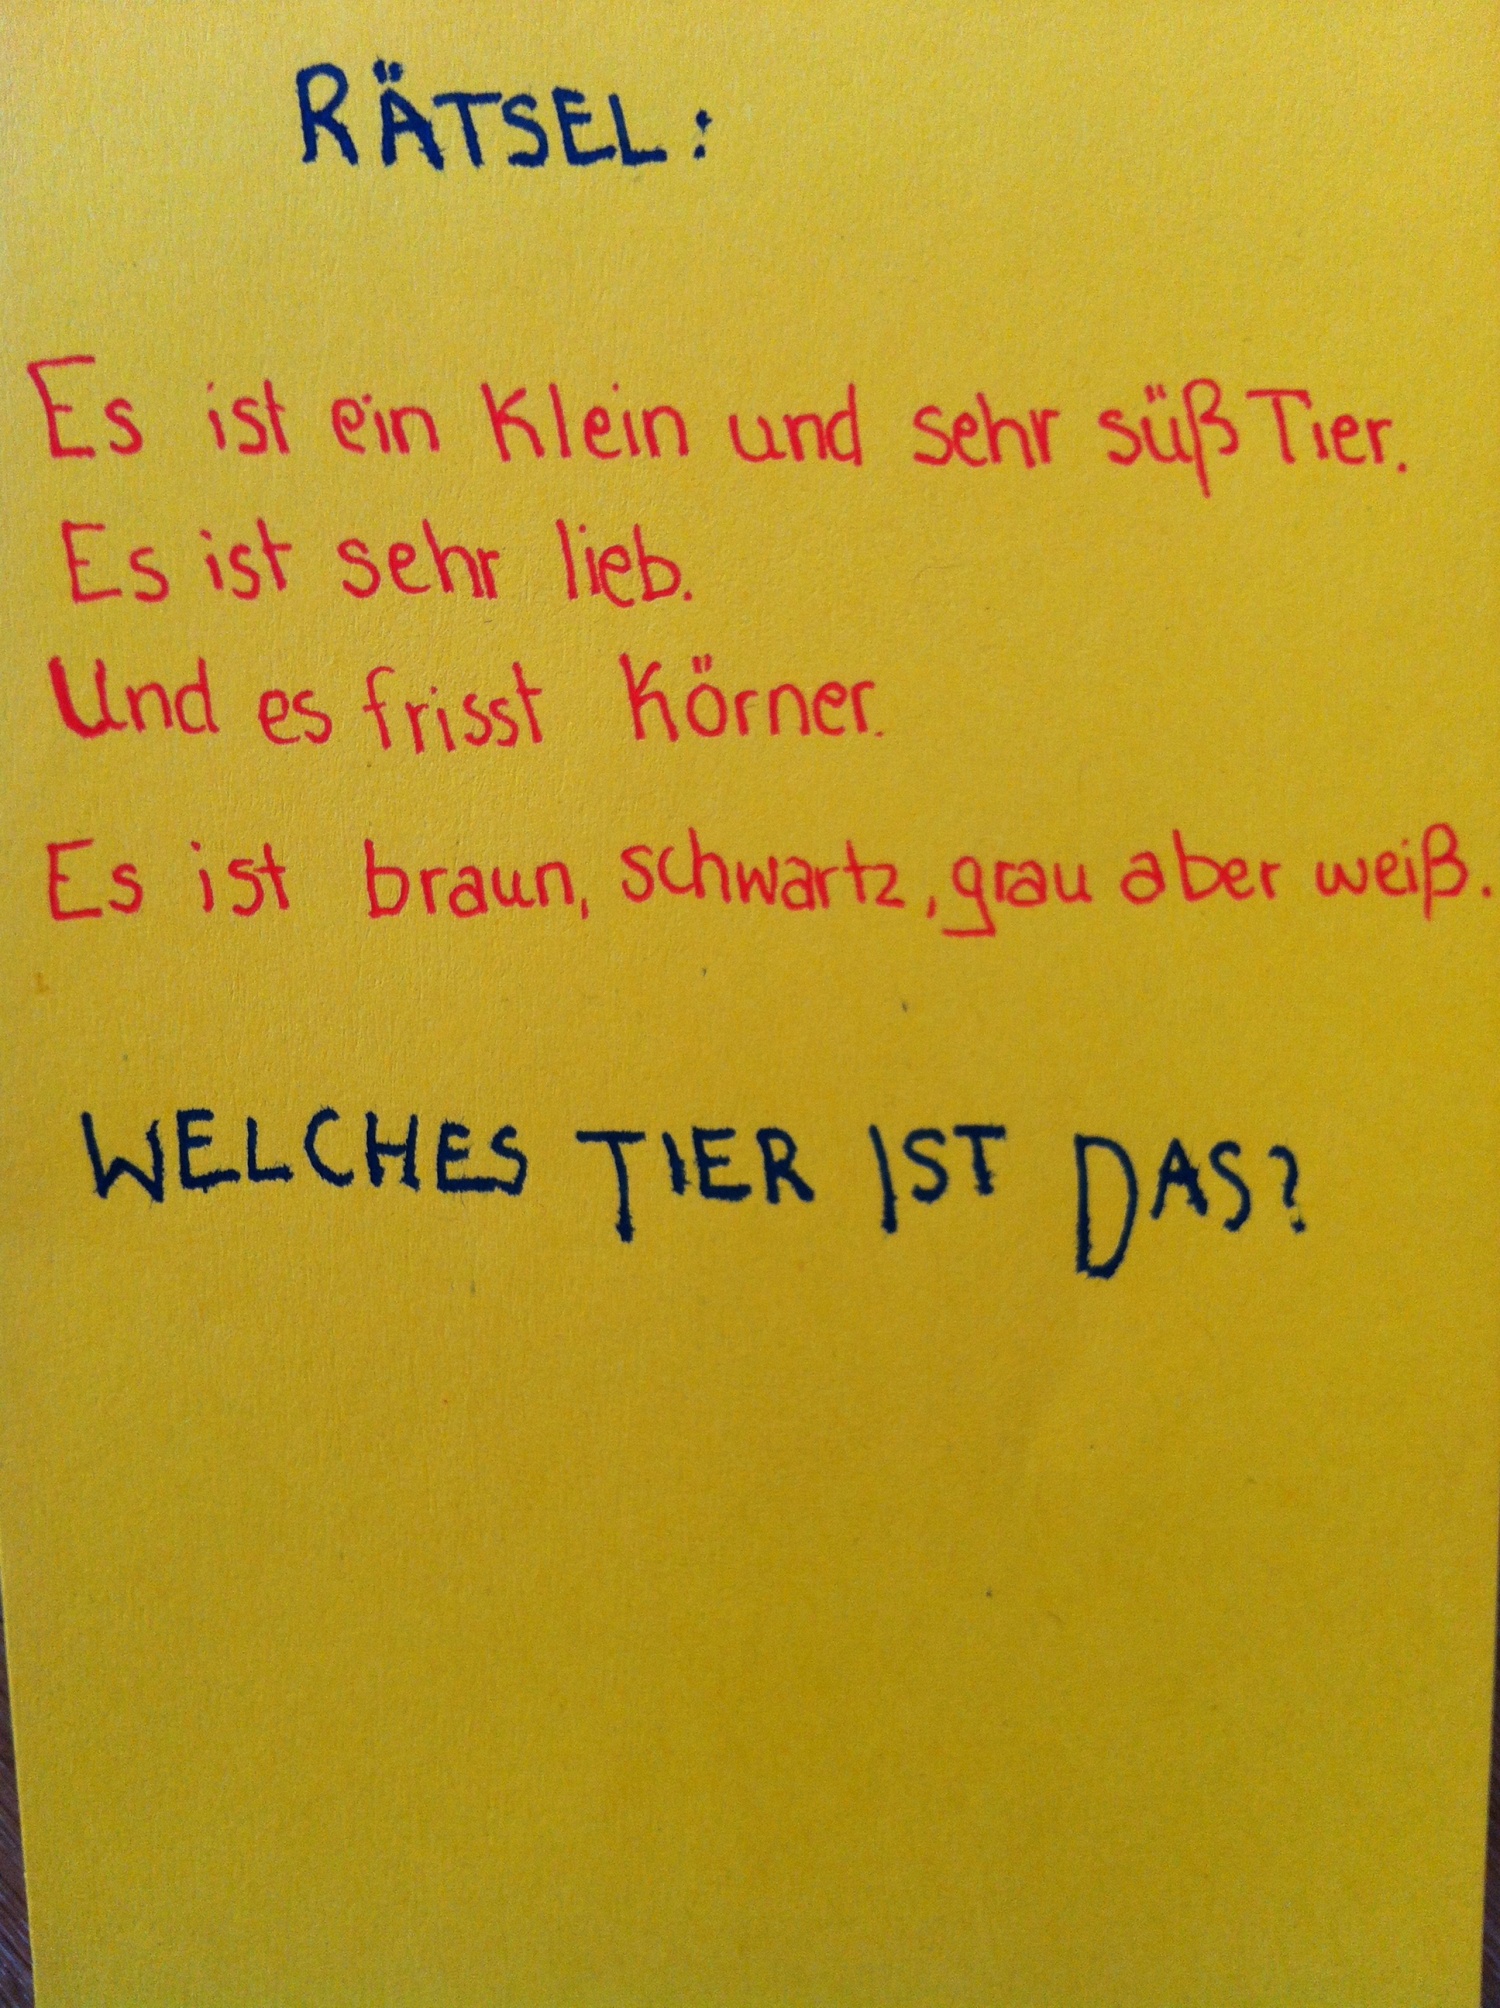 RÄTSEL:
Es ist ein Klein und sehr süß Tier.
Es ist sehr lieb.
Und es frisst Körner.
Es ist braun, schwartz, grau aber weiß.
WELCHES TIER IST DAS?